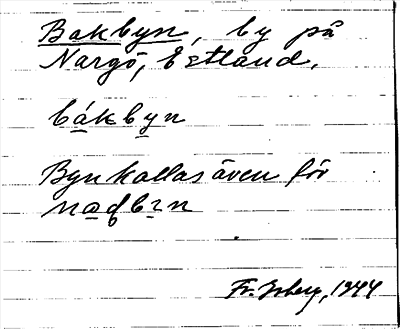 Bakbyn, by på
Nargö, Estland.
bákbyn
Byn kallas även för
Fr. Isberg, 1944